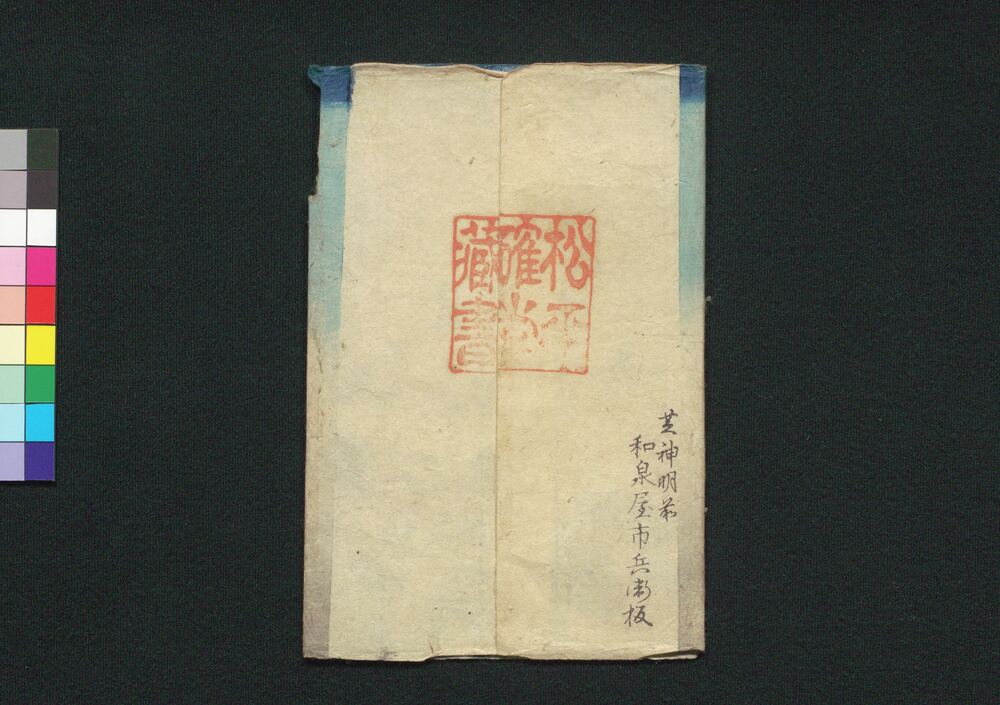 松平
確堂
藏書
芝神明前
和泉屋市兵衛板